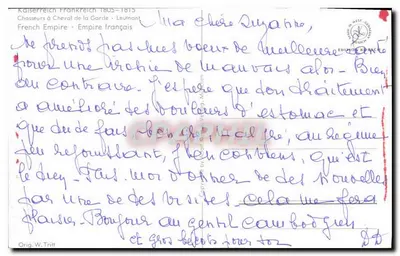 Kaiserreich Frankreich 1805-1815
Chasseurs à Cheval de la Garde - Leutnant
French Empire - Empire français
Ma chère Suzanne,
Ne prends pas mes voeux de meilleure santé
pour une ironie de mauvais aloi - Bien
au contraire. J'espère que ton traitement
a amélioré tes douleurs d'estomac et
que tu
régime
peu repoussant, j'en conviens, qui est
le tien - Fais moi donner de tes nouvelles
par une de tes visites - cela me fera
plaisir - Bonjour au gentil cambodgien
et gros bécots pour toi
DD
Orig. W. Tritt